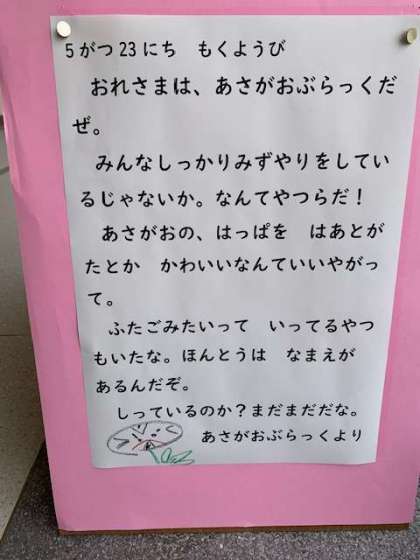 5がつ23にち　もくようび
おれさまは、あさがおぶらっくだ
ぜ。
みんなしっかりみずやりをしてい
るじゃないか。なんてやつらだ！
あさがおの、はっぱを　はあとが
たとか　かわいいなんていいやがっ
て。
ふたごみたいって　いってるやつ
もいたな。ほんとうは　なまえが
あるんだぞ。
しっているのか？まだまだだな。
あさがおぶらっくより